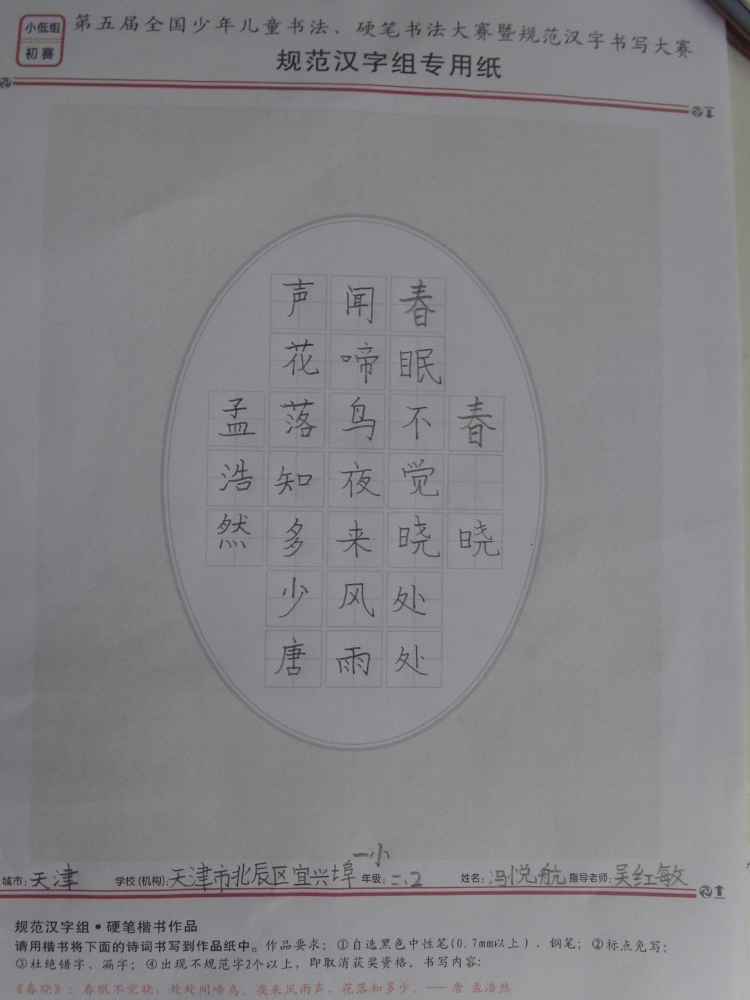 小低组
初赛
第五届全国少年儿童书法、硬笔书法大赛暨规范汉字书写大赛
规范汉字组专用纸
春晓
春眠不觉晓处处
闻啼鸟夜来风雨
声花落知多少唐
孟浩然
城市:天津 学校(机构):天津市北辰区宜兴埠一小 年级:二、2 姓名:冯悦航 指导老师:吴红敏
规范汉字组·硬笔楷书作品
请用楷书将下面的诗词书写到作品纸中。作品要求:①自选黑色中性笔(0.7mm以上)、钢笔;②标点免写;
③杜绝错字、漏字;④出现不规范字2个以上,即取消获奖资格。书写内容:
《春晓》:春眠不觉晓,处处闻啼鸟。夜来风雨声,花落知多少。——唐 孟浩然